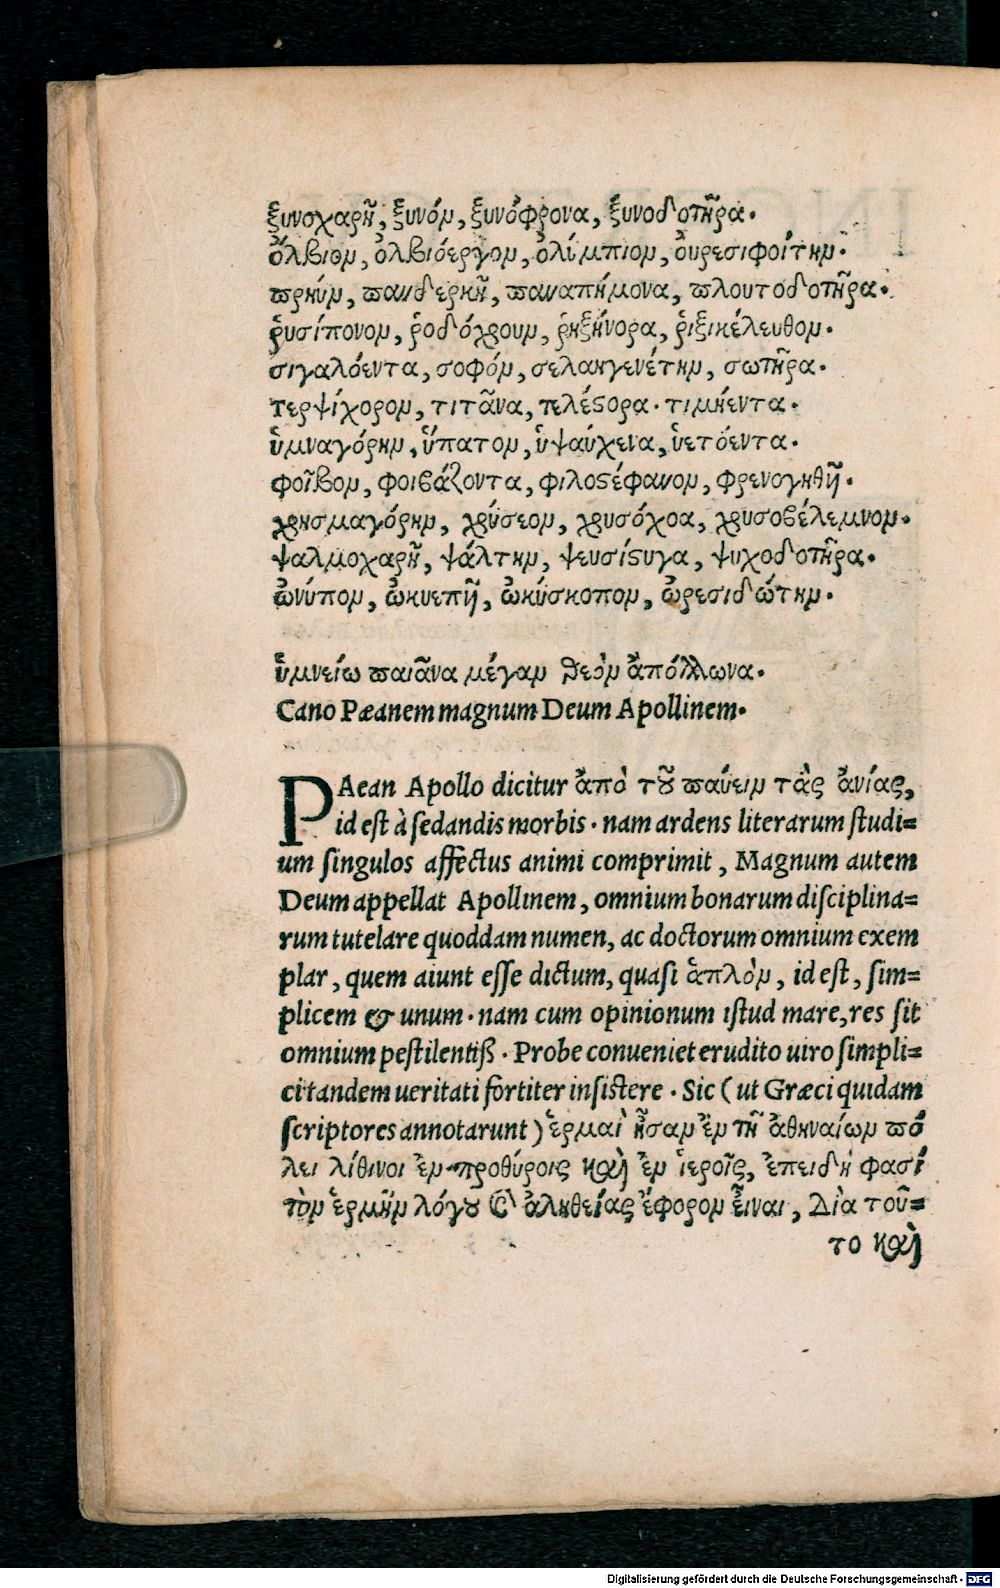 ξυνοχαρῆ, ξυνόν, ξυνόφρονα, ξυνοδοτῆρα.
ὄλβιον, ὀλβιόεργον, ὀλύμπιον, οὐρεσιφοίτην.
πρηύν, πανδερκῆ, παναπήμονα, πλουτοδοτῆρα.
ῥυσίπονον, ῥοδόχρουν, ῥηξήνορα, ῥιξικέλευθον.
σιγαλόεντα, σοφόν, σελαηγενέτην, σωτῆρα.
τερψίχορον, τιτᾶνα, τελέϛορα. τιμήεντα.
ὑμναγόρην, ὕπατον, ὑψαύχενα, ὑετόεντα.
φοῖβον, φοιβάζοντα, φιλοϛέφανον, φρενογηθῆ.
χρησμαγόρην, χρύσεον, χρυσόχοα, χρυσοβέλεμνον.
ψαλμοχαρῆ, ψάλτην, ψευσίϛυγα, ψυχοδοτῆρα.
ὠνύπον, ὠκυεπῆ, ὠκύσκοπον, ὠρεσιδώτην.
ὑμνείω παιᾶνα μέγαν θεὸν ἀπόλλωνα.
Cano Pæanem magnum Deum Apollinem.
PAean Apollo dicitur ἀπὸ τοῦ παύειν τὰς ἀνίας,
id est à sedandis morbis. nam ardens literarum studi=
um singulos affectus animi comprimit, Magnum autem
Deum appellat Apollinem, omnium bonarum disciplina=
rum tutelare quoddam numen, ac doctorum omnium exem
plar, quem aiunt esse dictum, quasi ἁπλὸν, id est, sim=
plicem & unum. nam cum opinionum istud mare, res sit
omnium pestilentiß. Probe conueniet erudito uiro simpli=
ci tandem ueritati fortiter insistere. Sic (ut Græci quidam
scriptores annotarunt) ἑρμαὶ ἦσαν ἐν τῇ ἀθηναίων πό
λει λίθινοι ἐν προθύροις καὶ ἐν ἱεροῖς, ἐπειδὴ φασὶ
τὸν ἑρμῆν λόγου καὶ ἀληθείας ἔφορον εἶναι, Διὰ τοῦ=
το καὶ
Digitalisierung gefördert durch die Deutsche Forschungsgemeinschaft - DFG